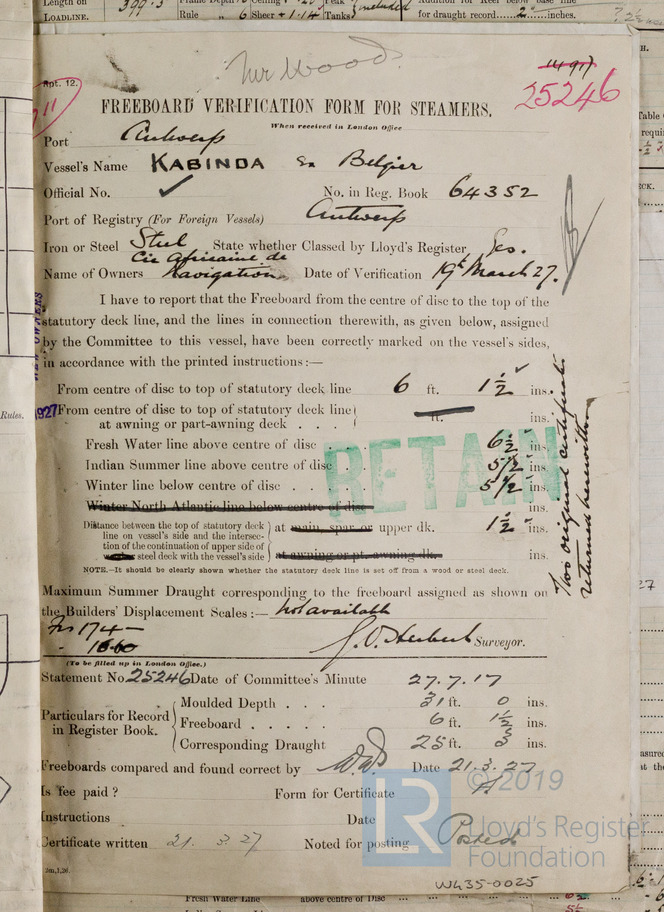 Length on
LOADLINE.
399.5
Rule " 6 Sheer + 1.14 Tanks included
for draught record......2"......inches.
Mr Wood.
Rpt. 12.
11
14917
25246
FREEBOARD VERIFICATION FORM FOR STEAMERS.
When received in London Office
Port Antwerp
Vessel's Name KABINDA Ex Belgier
Official No. ✓ No. in Reg. Book 64352
Port of Registry (For Foreign Vessels) Antwerp
Iron or Steel Steel State whether Classed by Lloyd's Register Yes.
Cie Africaine de
Name of Owners Navigation Date of Verification 19th March 27.
I have to report that the Freeboard from the centre of disc to the top of the
statutory deck line, and the lines in connection therewith, as given below, assigned
by the Committee to this vessel, have been correctly marked on the vessel's sides,
in accordance with the printed instructions:—
From centre of disc to top of statutory deck line 6 ft. 1½ ins.
Rules.
1927
From centre of disc to top of statutory deck line
at awning or part-awning deck . . . ft. ins.
Fresh Water line above centre of disc . 6½ ins.
Indian Summer line above centre of disc . . 5½ ins.
Winter line below centre of disc . . . 5½ ins.
Winter North Atlantic line below centre of disc ins.
RETAIN
Distance between the top of statutory deck
line on vessel's side and the intersec-
tion of the continuation of upper side of
steel deck with the vessel's side
at main, spar or upper dk. 1½ ins.
at awning or pt. awning dk. ins.
NOTE.—It should be clearly shown whether the statutory deck line is set off from a wood or steel deck.
Two original certificates
returned herewith
Maximum Summer Draught corresponding to the freeboard assigned as shown on
the Builders' Displacement Scales:— Not available
Frs 174 —
J.O. Herbert Surveyor.
(To be filled up in London Office.)
Statement No 25246 Date of Committee's Minute 27.7.17
Particulars for Record
in Register Book.
Moulded Depth . . . 31 ft. 0 ins.
Freeboard . . . . . 6 ft. 1½ ins.
Corresponding Draught 25 ft. 3 ins.
Freeboards compared and found correct by Date 21.3.27
Is fee paid ? Form for Certificate
Instructions Date
Certificate written 21.3.27 Noted for posting Posted
3m,1,26.
© 2019
LR
Lloyd's Register
Foundation
W435-0025
Fresh Water Line above centre of Disc